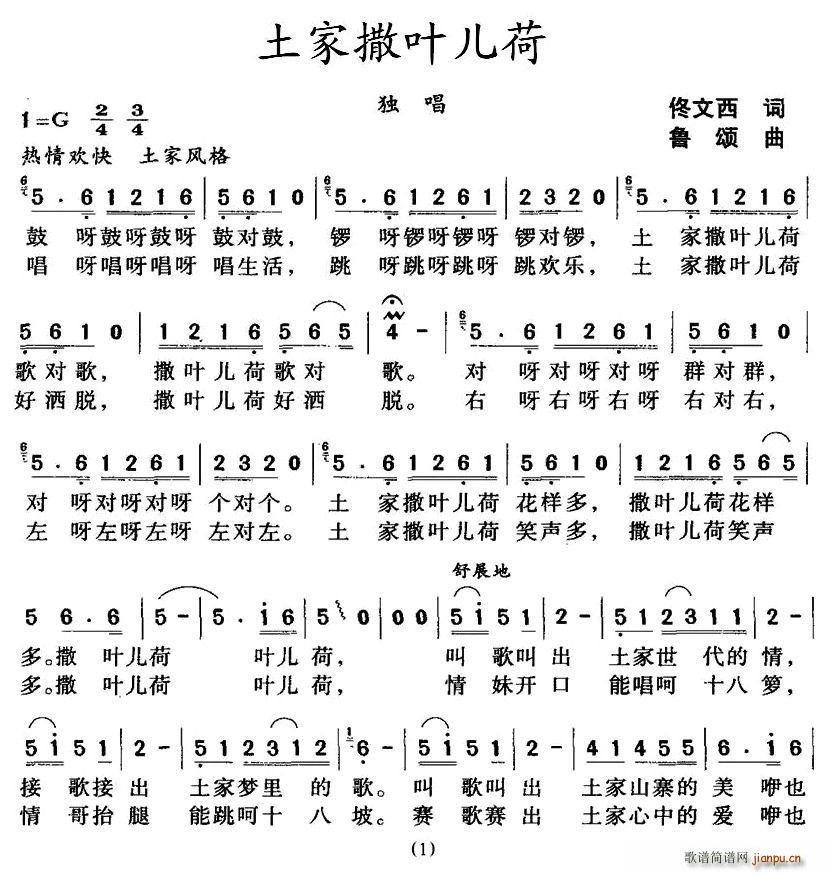 土家撒叶儿荷
独 唱
1=G 2/4 3/4
佟文西 词
鲁 颂 曲
热情欢快 土家风格
5 . 6 1 2 1 6 | 5 6 1 0 | 5 . 6 1 2 6 1 | 2 3 2 0 | 5 . 6 1 2 1 6 |
鼓 呀鼓呀鼓呀 鼓对鼓， 锣 呀锣呀锣呀 锣对锣， 土 家撒叶儿荷
唱 呀唱呀唱呀 唱生活， 跳 呀跳呀跳呀 跳欢乐， 土 家撒叶儿荷
5 6 1 0 | 1 2 1 6 5 6 5 | 4 - | 5 . 6 1 2 6 1 | 5 6 1 0 |
歌对歌， 撒叶儿荷歌对 歌。 对 呀对呀对呀 群对群，
好洒脱， 撒叶儿荷好洒 脱。 右 呀右呀右呀 右对右，
5 . 6 1 2 6 1 | 2 3 2 0 | 5 . 6 1 2 1 6 | 5 6 1 0 | 1 2 1 6 5 6 5 |
对 呀对呀对呀 个对个。 土 家撒叶儿荷 花样多， 撒叶儿荷花样
左 呀左呀左呀 左对左。 土 家撒叶儿荷 笑声多， 撒叶儿荷笑声
舒展地
5 6 . 6 | 5 - | 5 . 1 6 | 5 0 | 0 0 | 5 1 5 1 | 2 - | 5 1 2 3 1 1 | 2 - |
多。撒 叶儿荷 叶儿 荷， 叫 歌叫 出 土家世 代的 情，
多。撒 叶儿荷 叶儿 荷， 情 妹开 口 能唱呵 十八 箩，
5 1 5 1 | 2 - | 5 1 2 3 1 2 | 6 - | 5 1 5 1 | 2 - | 4 1 4 5 5 | 6 . 1 6 |
接 歌接 出 土家梦里 的 歌。 叫 歌叫 出 土家山寨的 美 咿也
情 哥抬 腿 能跳呵十 八 坡。 赛 歌赛 出 土家心中的 爱 咿也
(1)
歌谱简谱网 jianpu.cn